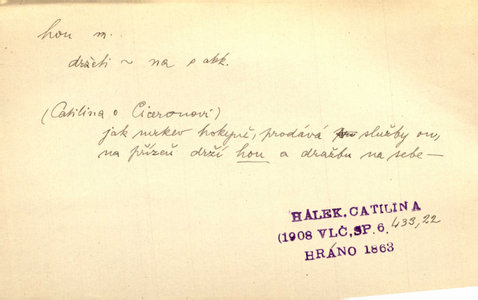 hon m.
držeti ~ na s akk.
(Catilina o Ciceronovi)
jak mrkev hokyně, prodává služby on,
na přízeň drží hon a dražbu na sebe —
HÁLEK. CATILINA
(1908 VLČ, SP. 6, 433, 22
HRÁNO 1863